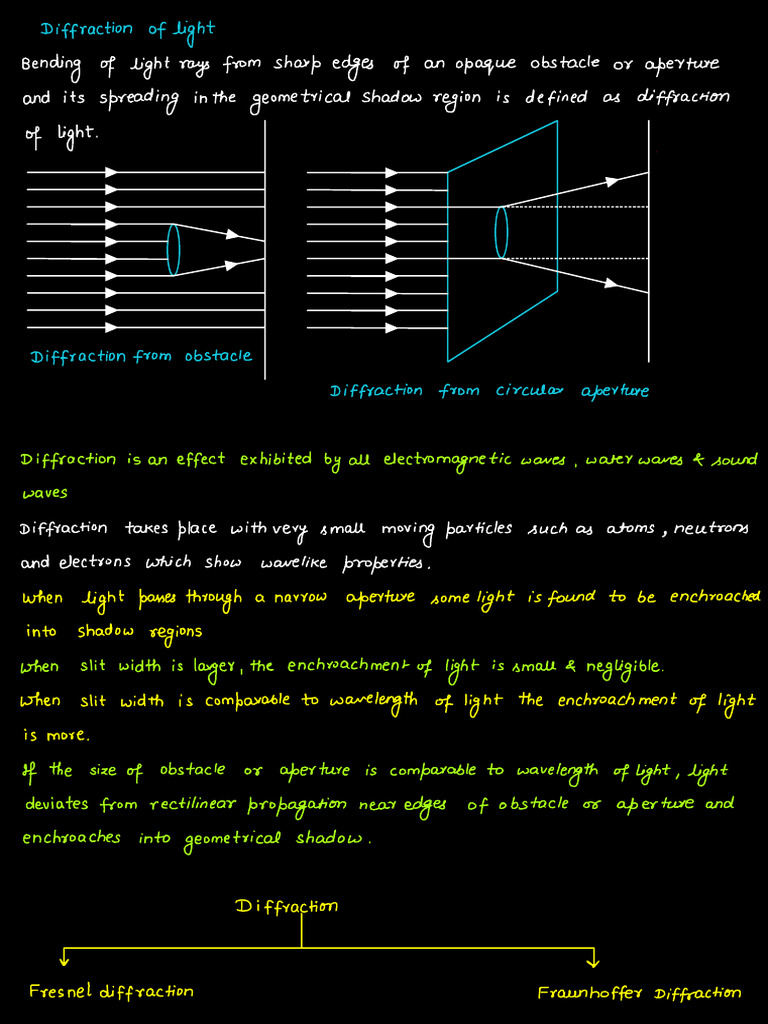 Diffraction of light
Bending of light rays from sharp edges of an opaque obstacle or aperture
and its spreading in the geometrical shadow region is defined as diffraction
of light.
Diffraction from obstacle
Diffraction from circular aperture
Diffraction is an effect exhibited by all electromagnetic waves, water waves & sound
waves
Diffraction takes place with very small moving particles such as atoms, neutrons
and electrons which show wavelike properties.
When light passes through a narrow aperture some light is found to be enchroached
into shadow regions
When slit width is larger, the enchroachment of light is small & negligible.
When slit width is comparable to wavelength of light the enchroachment of light
is more.
If the size of obstacle or aperture is comparable to wavelength of light, light
deviates from rectilinear propagation near edges of obstacle or aperture and
enchroaches into geometrical shadow.
Diffraction
Fresnel diffraction
Fraunhoffer Diffraction